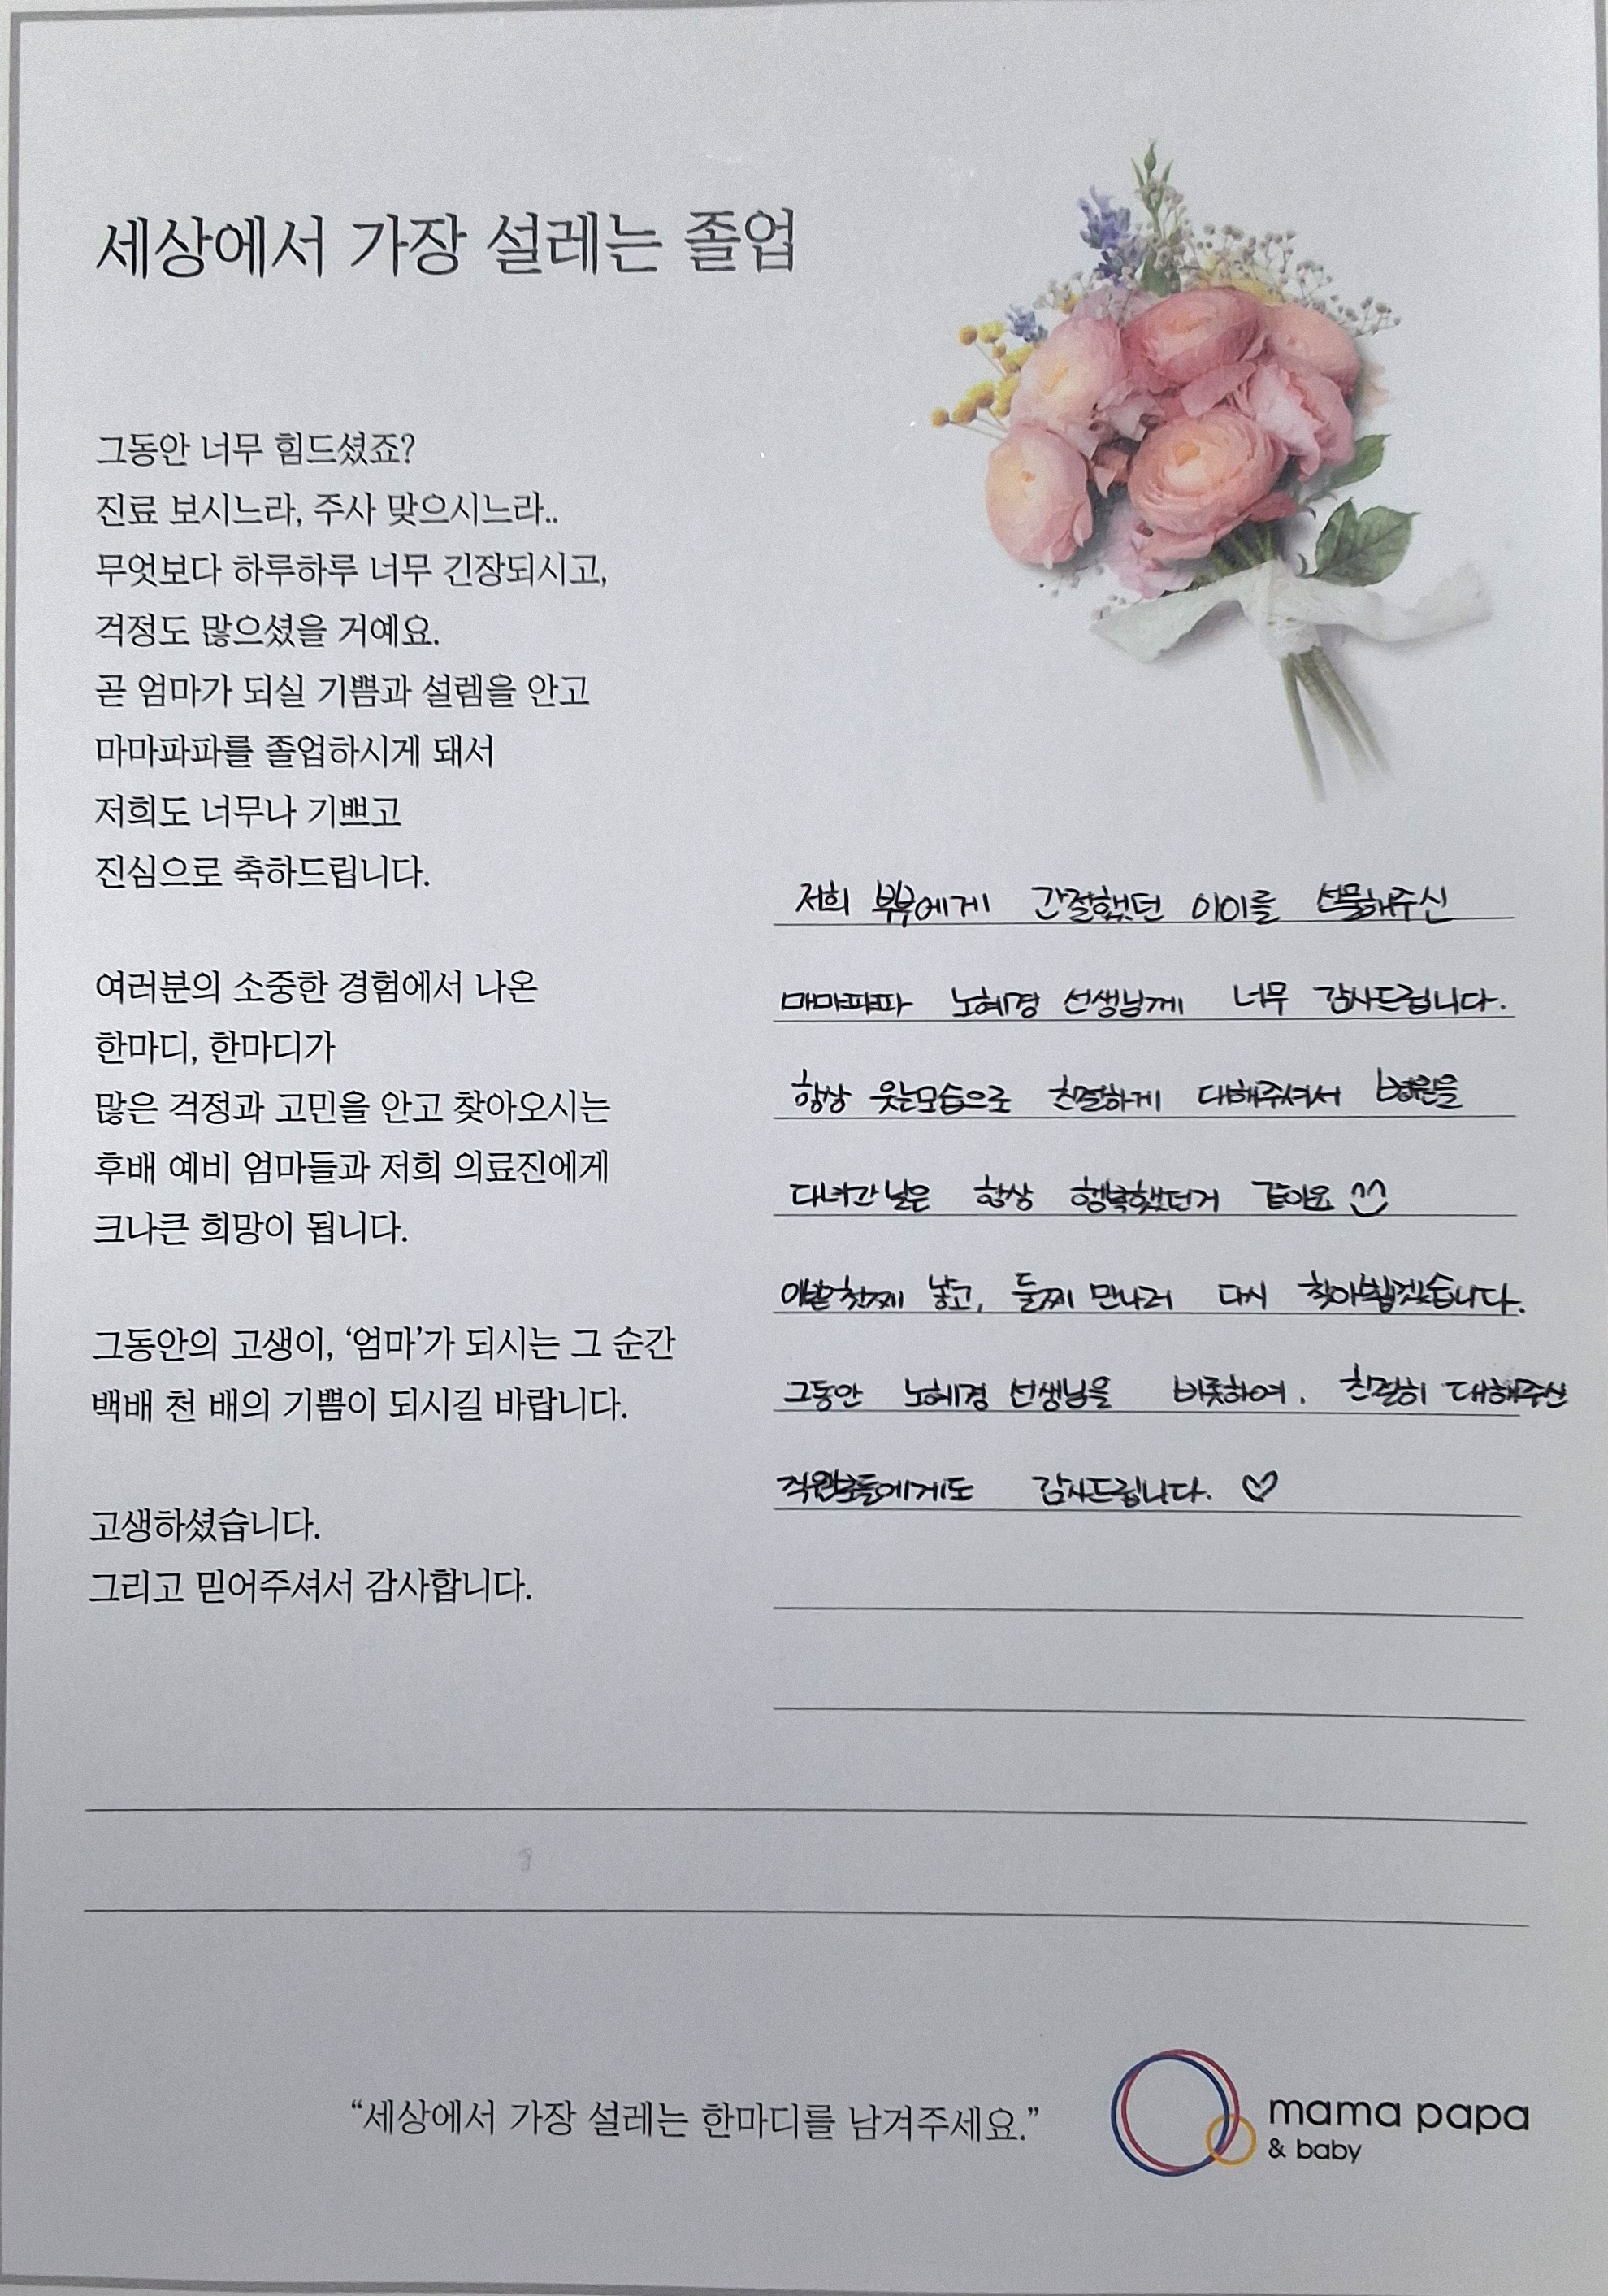 세상에서 가장 설레는 졸업
그동안 너무 힘드셨죠?
진료 보시느라, 주사 맞으시느라..
무엇보다 하루하루 너무 긴장되시고,
걱정도 많으셨을 거예요.
곧 엄마가 되실 기쁨과 설렘을 안고
마마파파를 졸업하시게 돼서
저희도 너무나 기쁘고
진심으로 축하드립니다.
여러분의 소중한 경험에서 나온
한마디, 한마디가
많은 걱정과 고민을 안고 찾아오시는
후배 예비 엄마들과 저희 의료진에게
크나큰 희망이 됩니다.
그동안의 고생이, ‘엄마’가 되시는 그 순간
백배 천 배의 기쁨이 되시길 바랍니다.
고생하셨습니다.
그리고 믿어주셔서 감사합니다.
저희 부부에게 간절했던 아이를 선물해주신
마마파파 노혜경 선생님께 너무 감사드립니다.
항상 웃는모습으로 친절하게 대해주셔서 병원을
다녀간 날은 항상 행복했던거 같아요
첫째 낳고, 둘째 만나러 다시 찾아뵙겠습니다.
그동안 노혜경 선생님을 비롯하여. 친절히 대해주신
직원분들에게도 감사드립니다. ♡
“세상에서 가장 설레는 한마디를 남겨주세요.”
mama papa
& baby